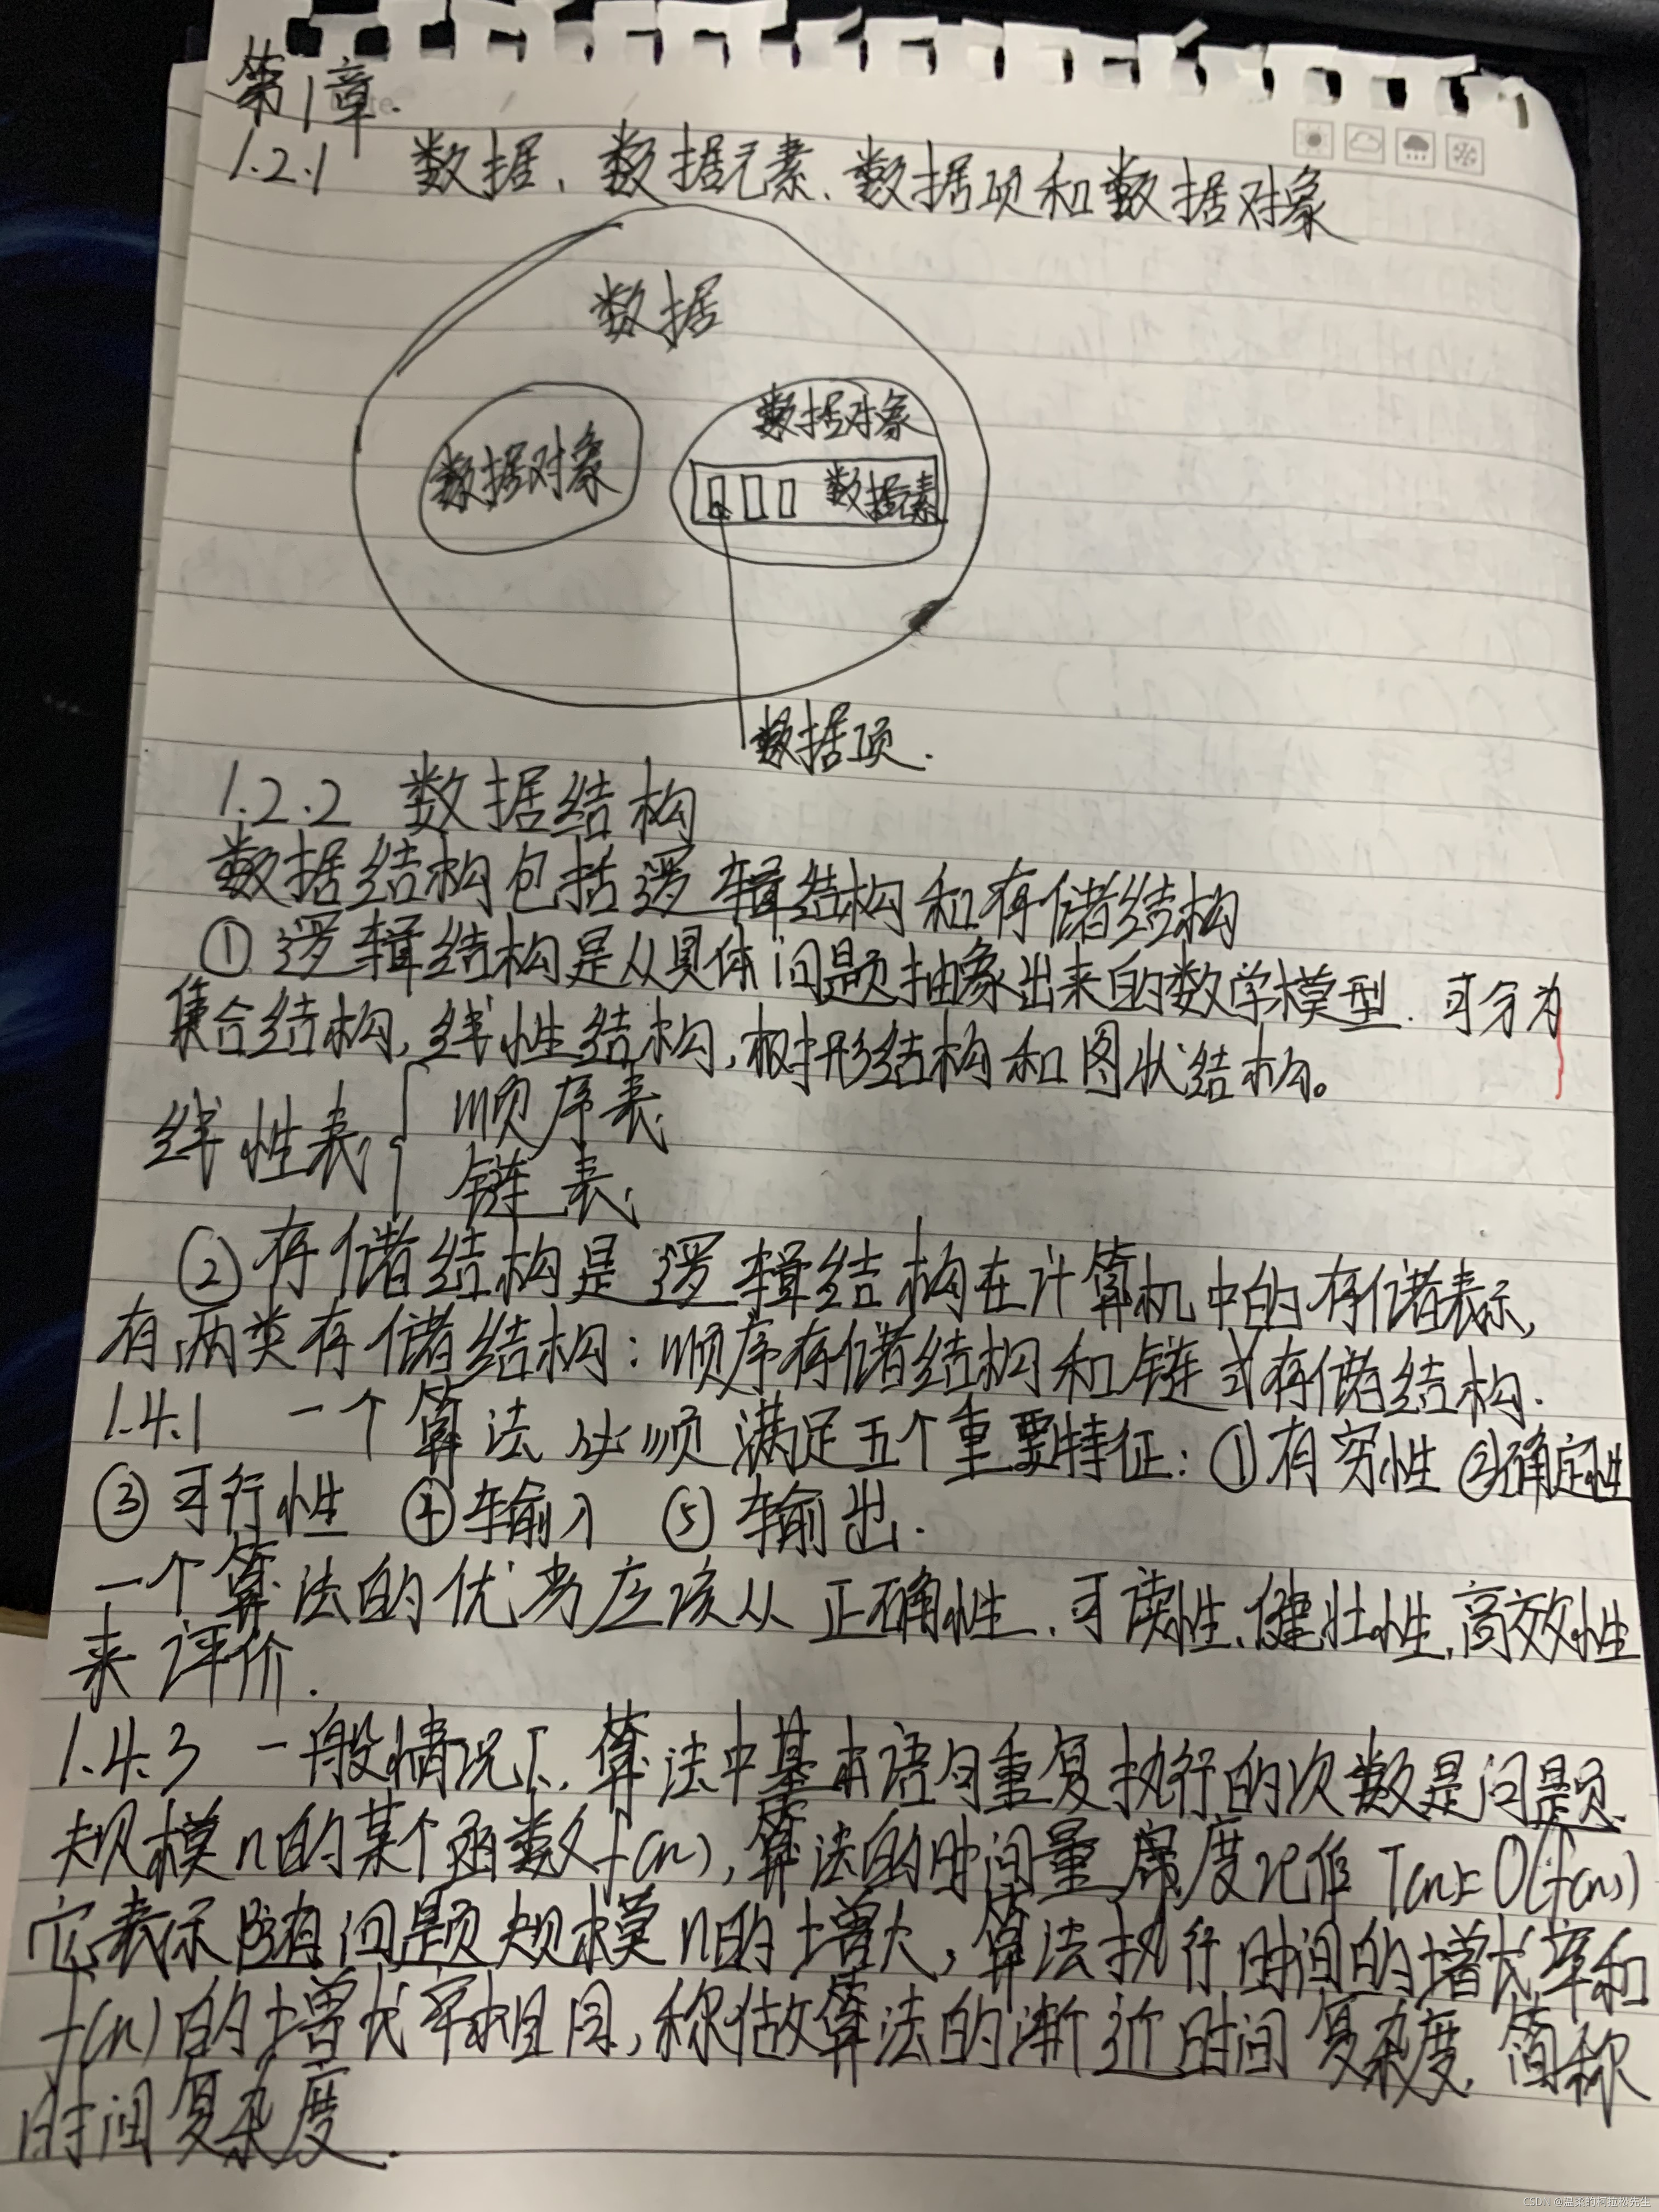 第1章.
1.2.1 数据、数据元素、数据项和数据对象
数据
数据对象
数据对象
数据元素
数据项.
1.2.2 数据结构
数据结构包括逻辑结构和存储结构
①逻辑结构是从具体问题抽象出来的数学模型. 可分为
集合结构,线性结构,树形结构和图状结构。
线性表
顺序表
链表
②存储结构是逻辑结构在计算机中的存储表示,
有两类存储结构:顺序存储结构和链式存储结构.
1.4.1 一个算法必须满足五个重要特征:①有穷性②确定性
③可行性 ④输入 ⑤输出.
一个算法的优劣应该从正确性、可读性、健壮性,高效性
来评价.
1.4.3 一般情况下,算法中基本语句重复执行的次数是问题
规模n的某个函数f(n),算法的时间量度记作T(n)=O(f(n))
它表示随问题规模n的增大,算法执行时间的增长率和
f(n)的增长率相同,称做算法的渐近时间复杂度,简称
时间复杂度.
CSDN @温柔的柯拉松先生